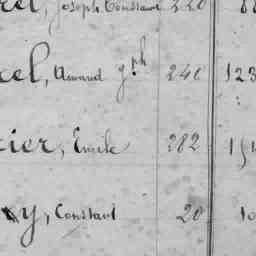 Joseph Constant 220
cel, Armand Jph 240 123
cier, Emile 282 151
y, Constant 20 10